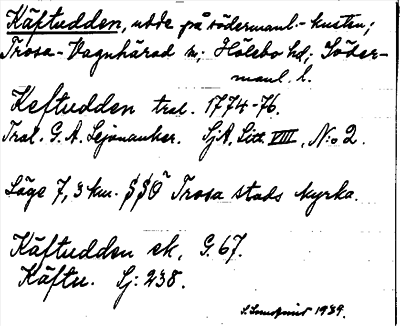 Käftudden, udde på södermanl-kusten;
Trosa-Vagnhärad sn; Hölebo hd; Söder-
manl. l.
Keftudden tral. 1774-76.
Tral. G. A. Lejonanker. SjA, Litt. VIII, N:o 2.
Läge 7,3 km. SSO Trosa stads kyrka.
Käftudden ek. G. 67.
Käftu. Sj: 238.
S. Lundqvist 1939.